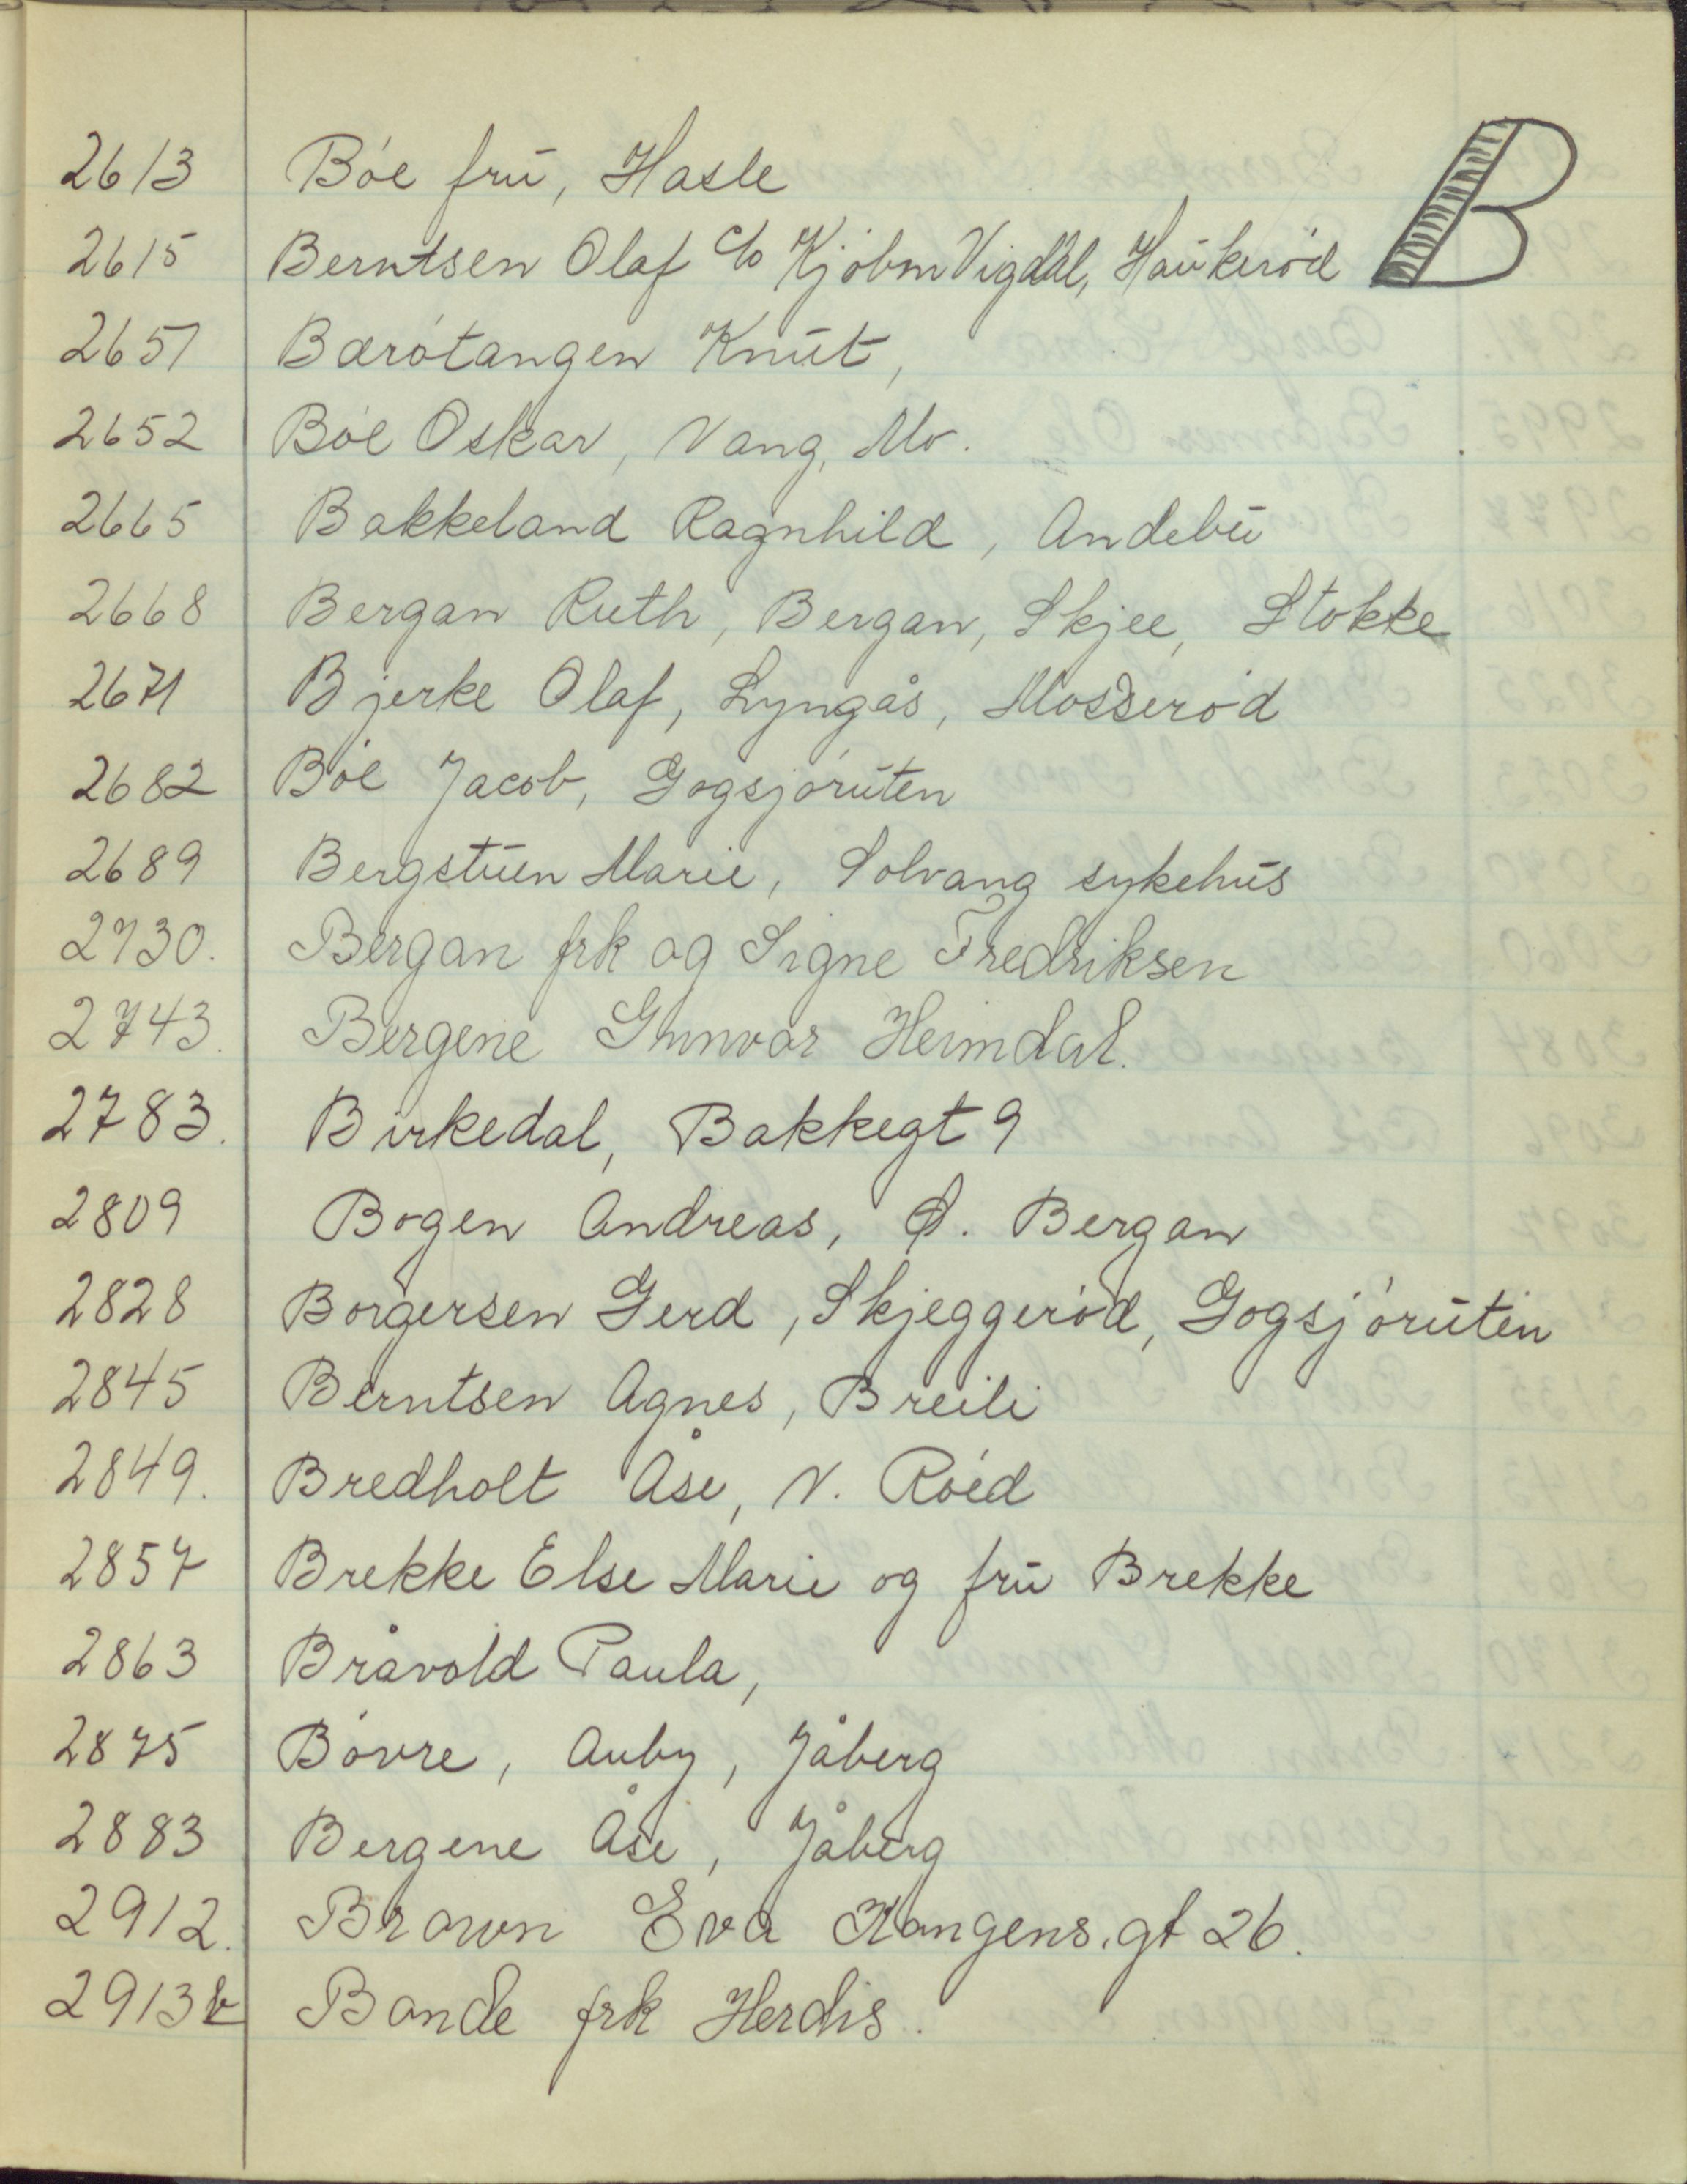 B
2613 Bóe frū, Hasle
2615 Berntsen Olaf c/o Kjóbm Vigdal, Haūkeród
2651 Bærótangen Knūt,
2652 Bóe Oskar, Vang, Mo.
2665 Bakkeland Ragnhild, Andebū
2668 Bergan Ruth, Bergan, Skjee, Stokke
2671 Bjerke Olaf, Lyngås, Mosseród
2682 Bóe Jacob, Gogsjórūten
2689 Bergstūen Marie, Solvang sykehūs
2730. Bergan frk og Signe Fredriksen
2743. Bergene Gunvor Heimdal.
2783. Birkedal, Bakkegt 9
2809 Bogen Andreas, Ø. Bergan
2828 Borgersen Gerd, Skjeggeród, Gogsjórūten
2845 Berntsen Agnes, Breili
2849. Bredholt Åse, N. Róed
2857 Brekke Else Marie og frū Brekke
2863 Bråvold Paula,
2875 Bóvre, Auby, Jåberg
2883 Bergene Åse, Jåberg
2912. Brown Eva Kongens.gt 26.
2913b Bonde frk Herdis.